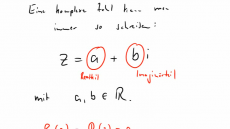 Eine komplexe Zahl kann man
immer so schreiben:
z = a + b i
Realteil Imaginärteil
mit a, b ∈ ℝ.